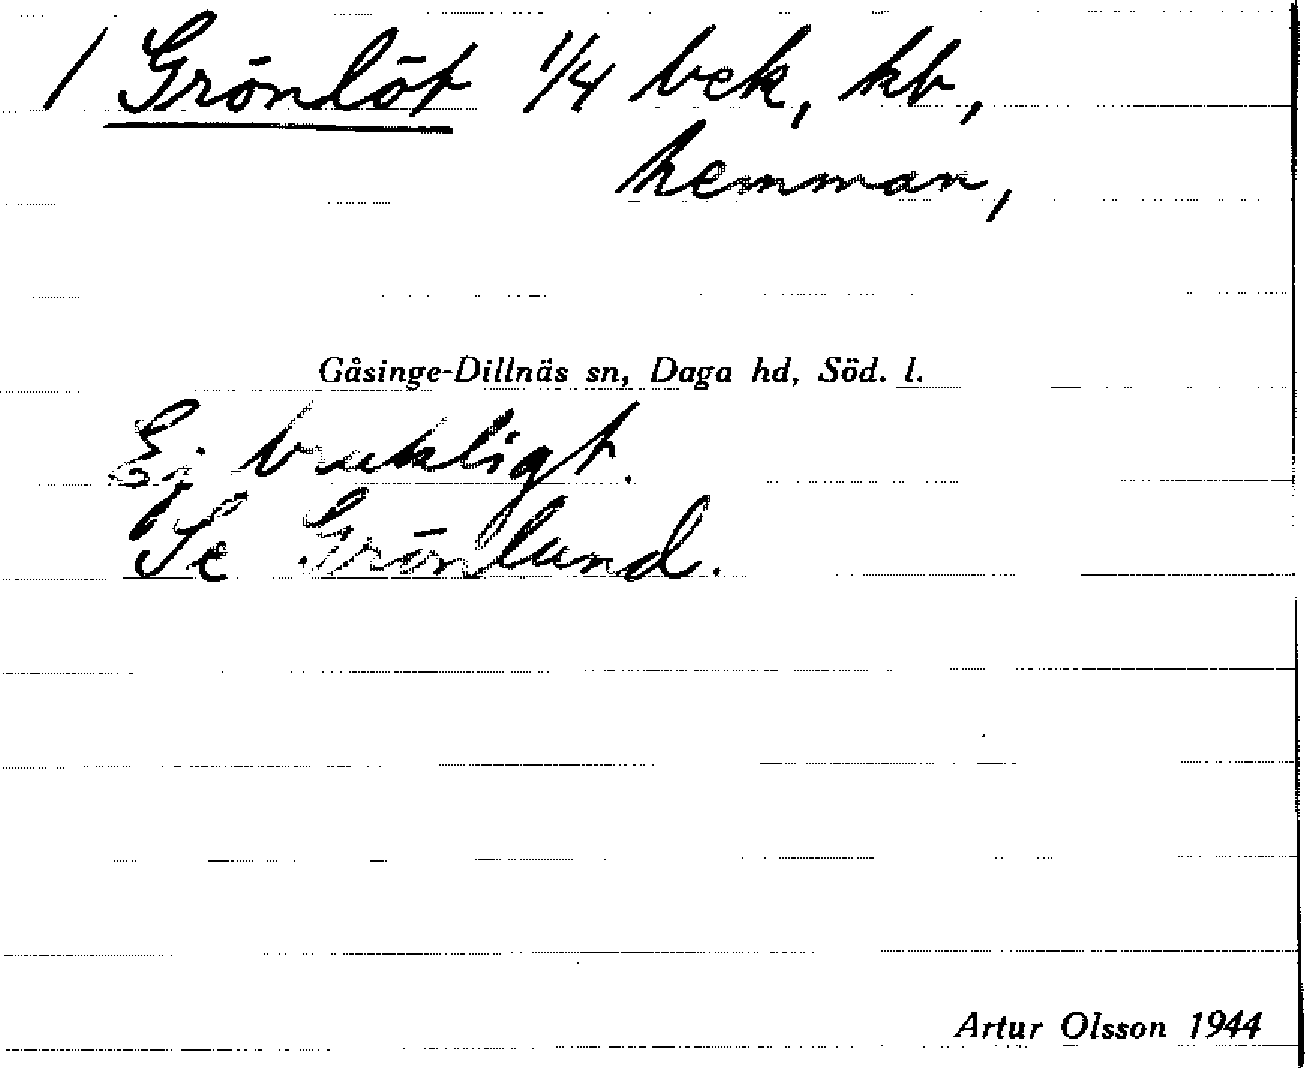 / Grönlöt 1/4 bek, kb,
hemman,
Gåsinge-Dillnäs sn, Daga hd, Söd. l.
Ej brukligt.
Se Grönlund.
Artur Olsson 1944